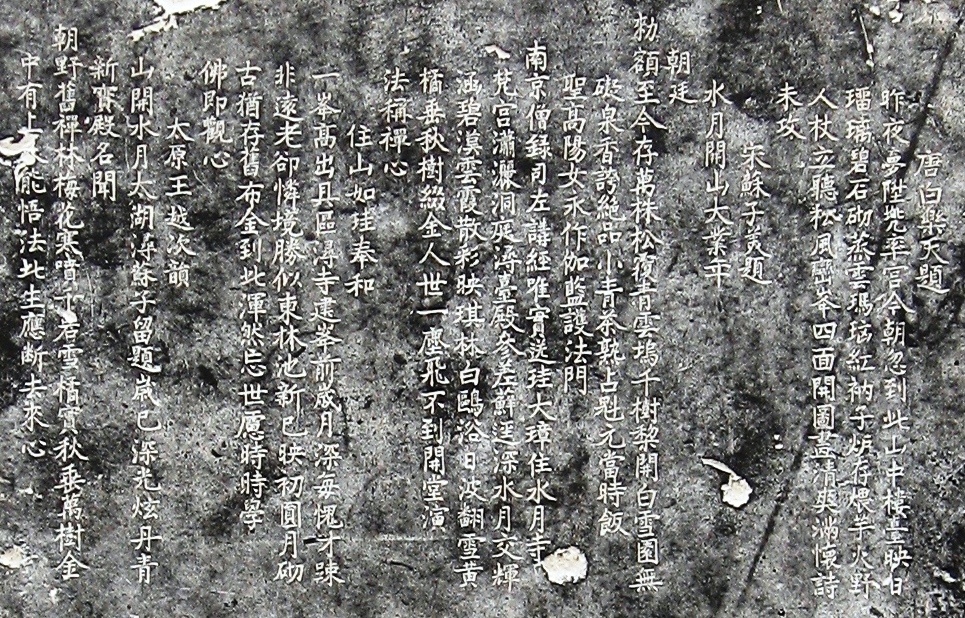 唐白樂天題
昨夜夢陞兜率宮今朝忽到此山中樓臺映日
璢璃碧石砌蒸雲瑪瑙紅衲子炉存煨芋火野
人杖立聽松風齊峯四面開圖畫清爽滿懷詩
未攻
宋蘇子美題
水月開山大業年
朝廷
勑額至今存萬株松覆青雲塢千樹梨開白雪園無
礙泉香誇絶品小青茶熟占魁元當時飯
聖高陽女永作伽藍護法門
南京僧録司左講經唯實送珪大璋住水月寺
梵宮瀟灑洞庭潯臺殿參差鮮逕深水月交輝
涵碧漠雲霞散彩映琪林白鷗浴日波翻雪黄
橘垂秋樹綴金人世一塵飛不到開堂演
法稱禪心
住山如珪奉和
一峯髙出具區潯寺建峯前歳月深每愧才踈
非遠老卻憐境勝似東林池新已映初圓月砌
古猶存舊布金到此渾然忘世慮時時學
佛即觀心
太原王越次韻
山開水月太湖潯蘇子留題歳已深光炫丹青
新寶殿名聞
朝野舊禪林梅花寒噴千岩雪橘實秋垂萬樹金
中有上能悟法此生應断去來心